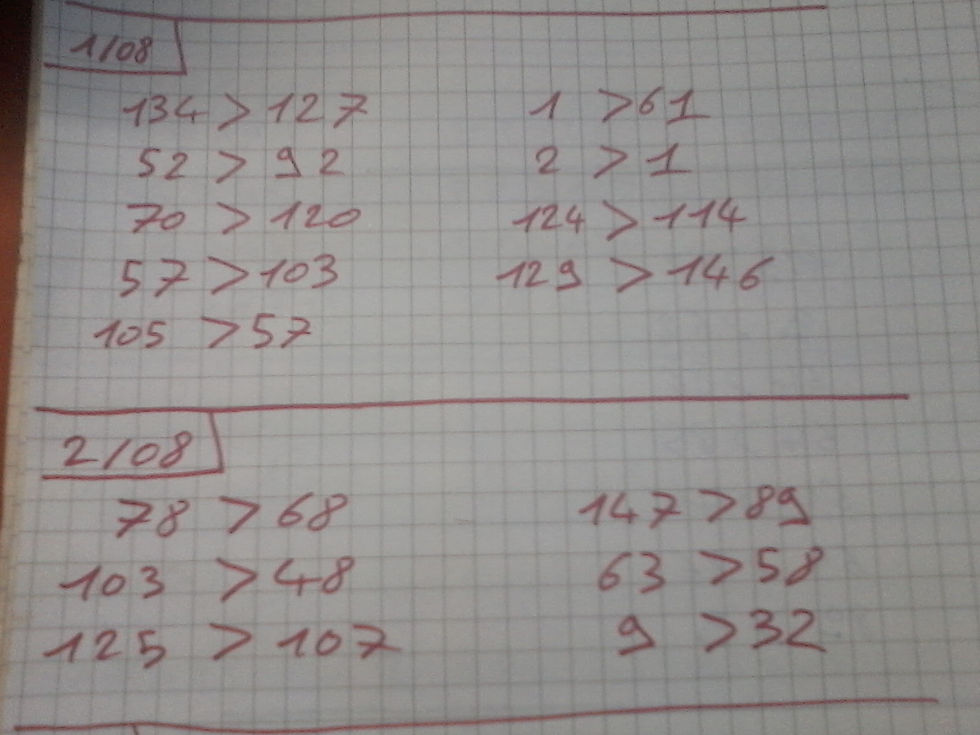 1/08
134 > 127 1 > 61
52 > 92 2 > 1
70 > 120 124 > 114
57 > 103 129 > 146
105 > 57
2/08
78 > 68 147 > 89
103 > 48 63 > 58
125 > 107 9 > 32